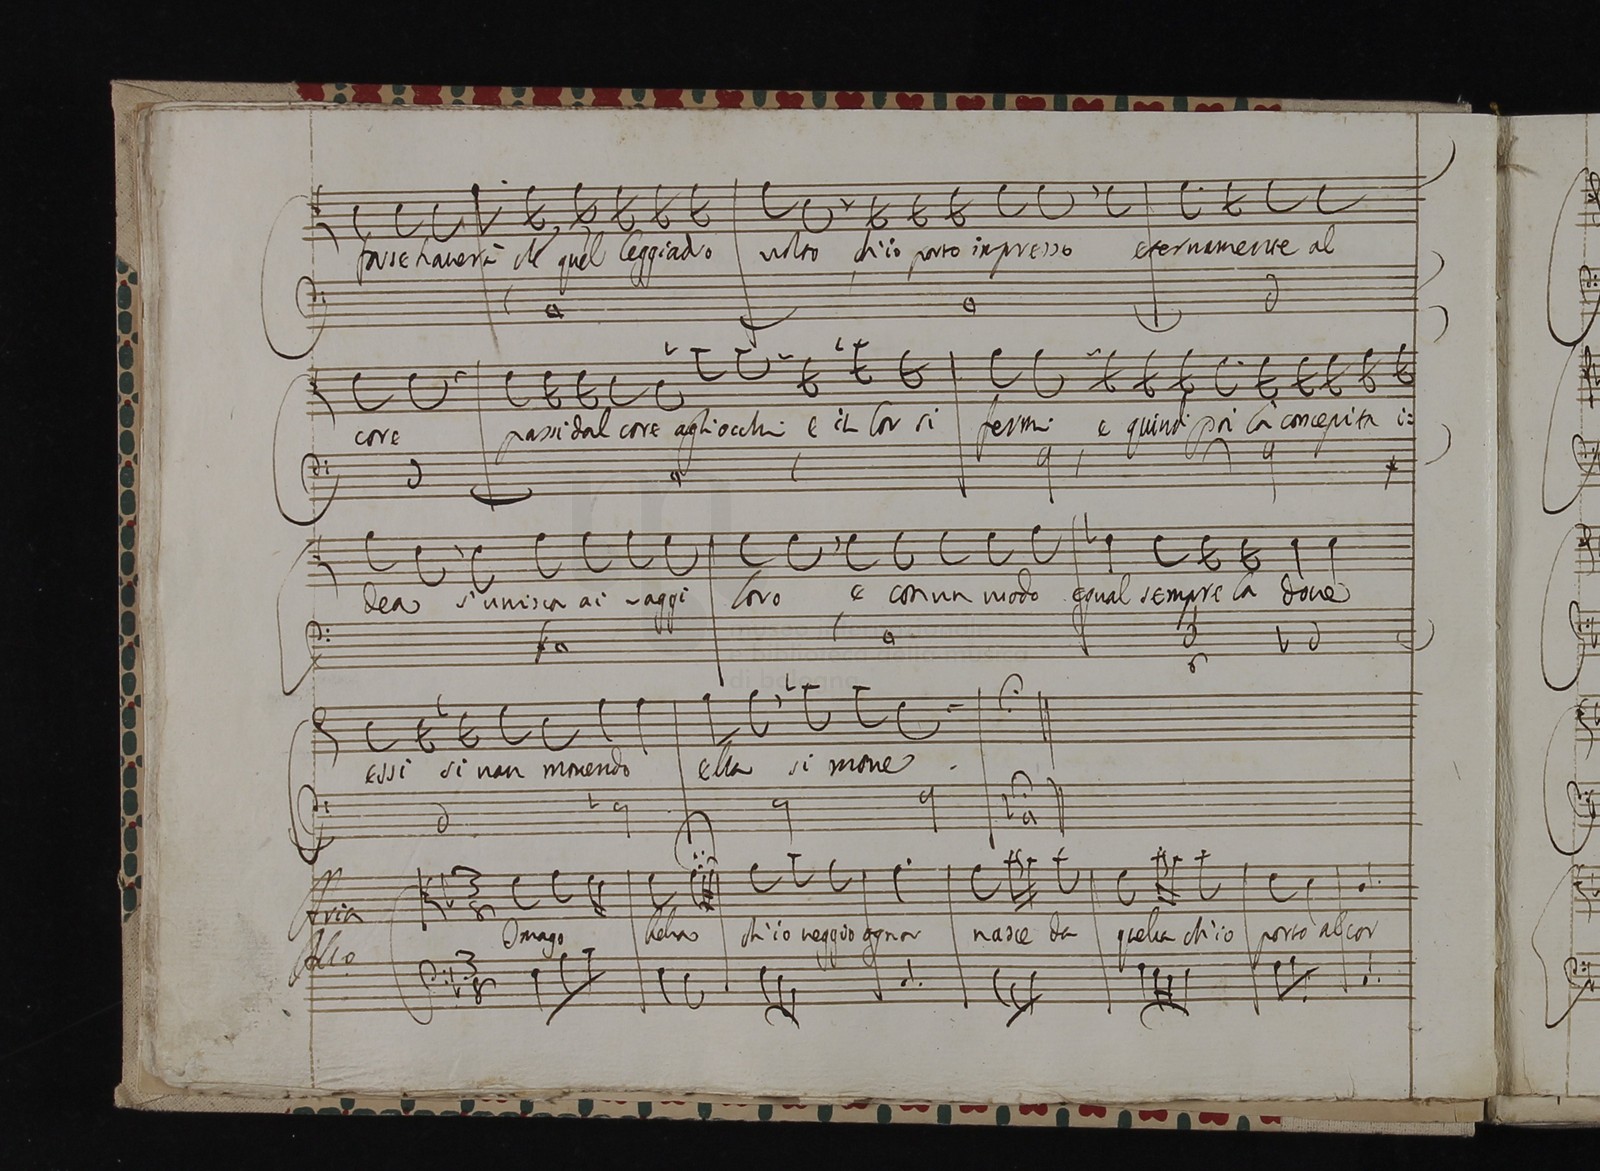 forse haverà de quel leggiadro volto ch'io porto impresso eternamente al
core passi dal core agli occhi e il cor si fermi e quindi poi la concepita i=
dea s'unisca ai raggi loro e con un modo egual sempre la dove
essi si van movendo ella si move.
Aria Imago bella ch'io veggio ognor nasce da quella ch'io porto al cor
museo internazionale
e biblioteca della musica
di bologna